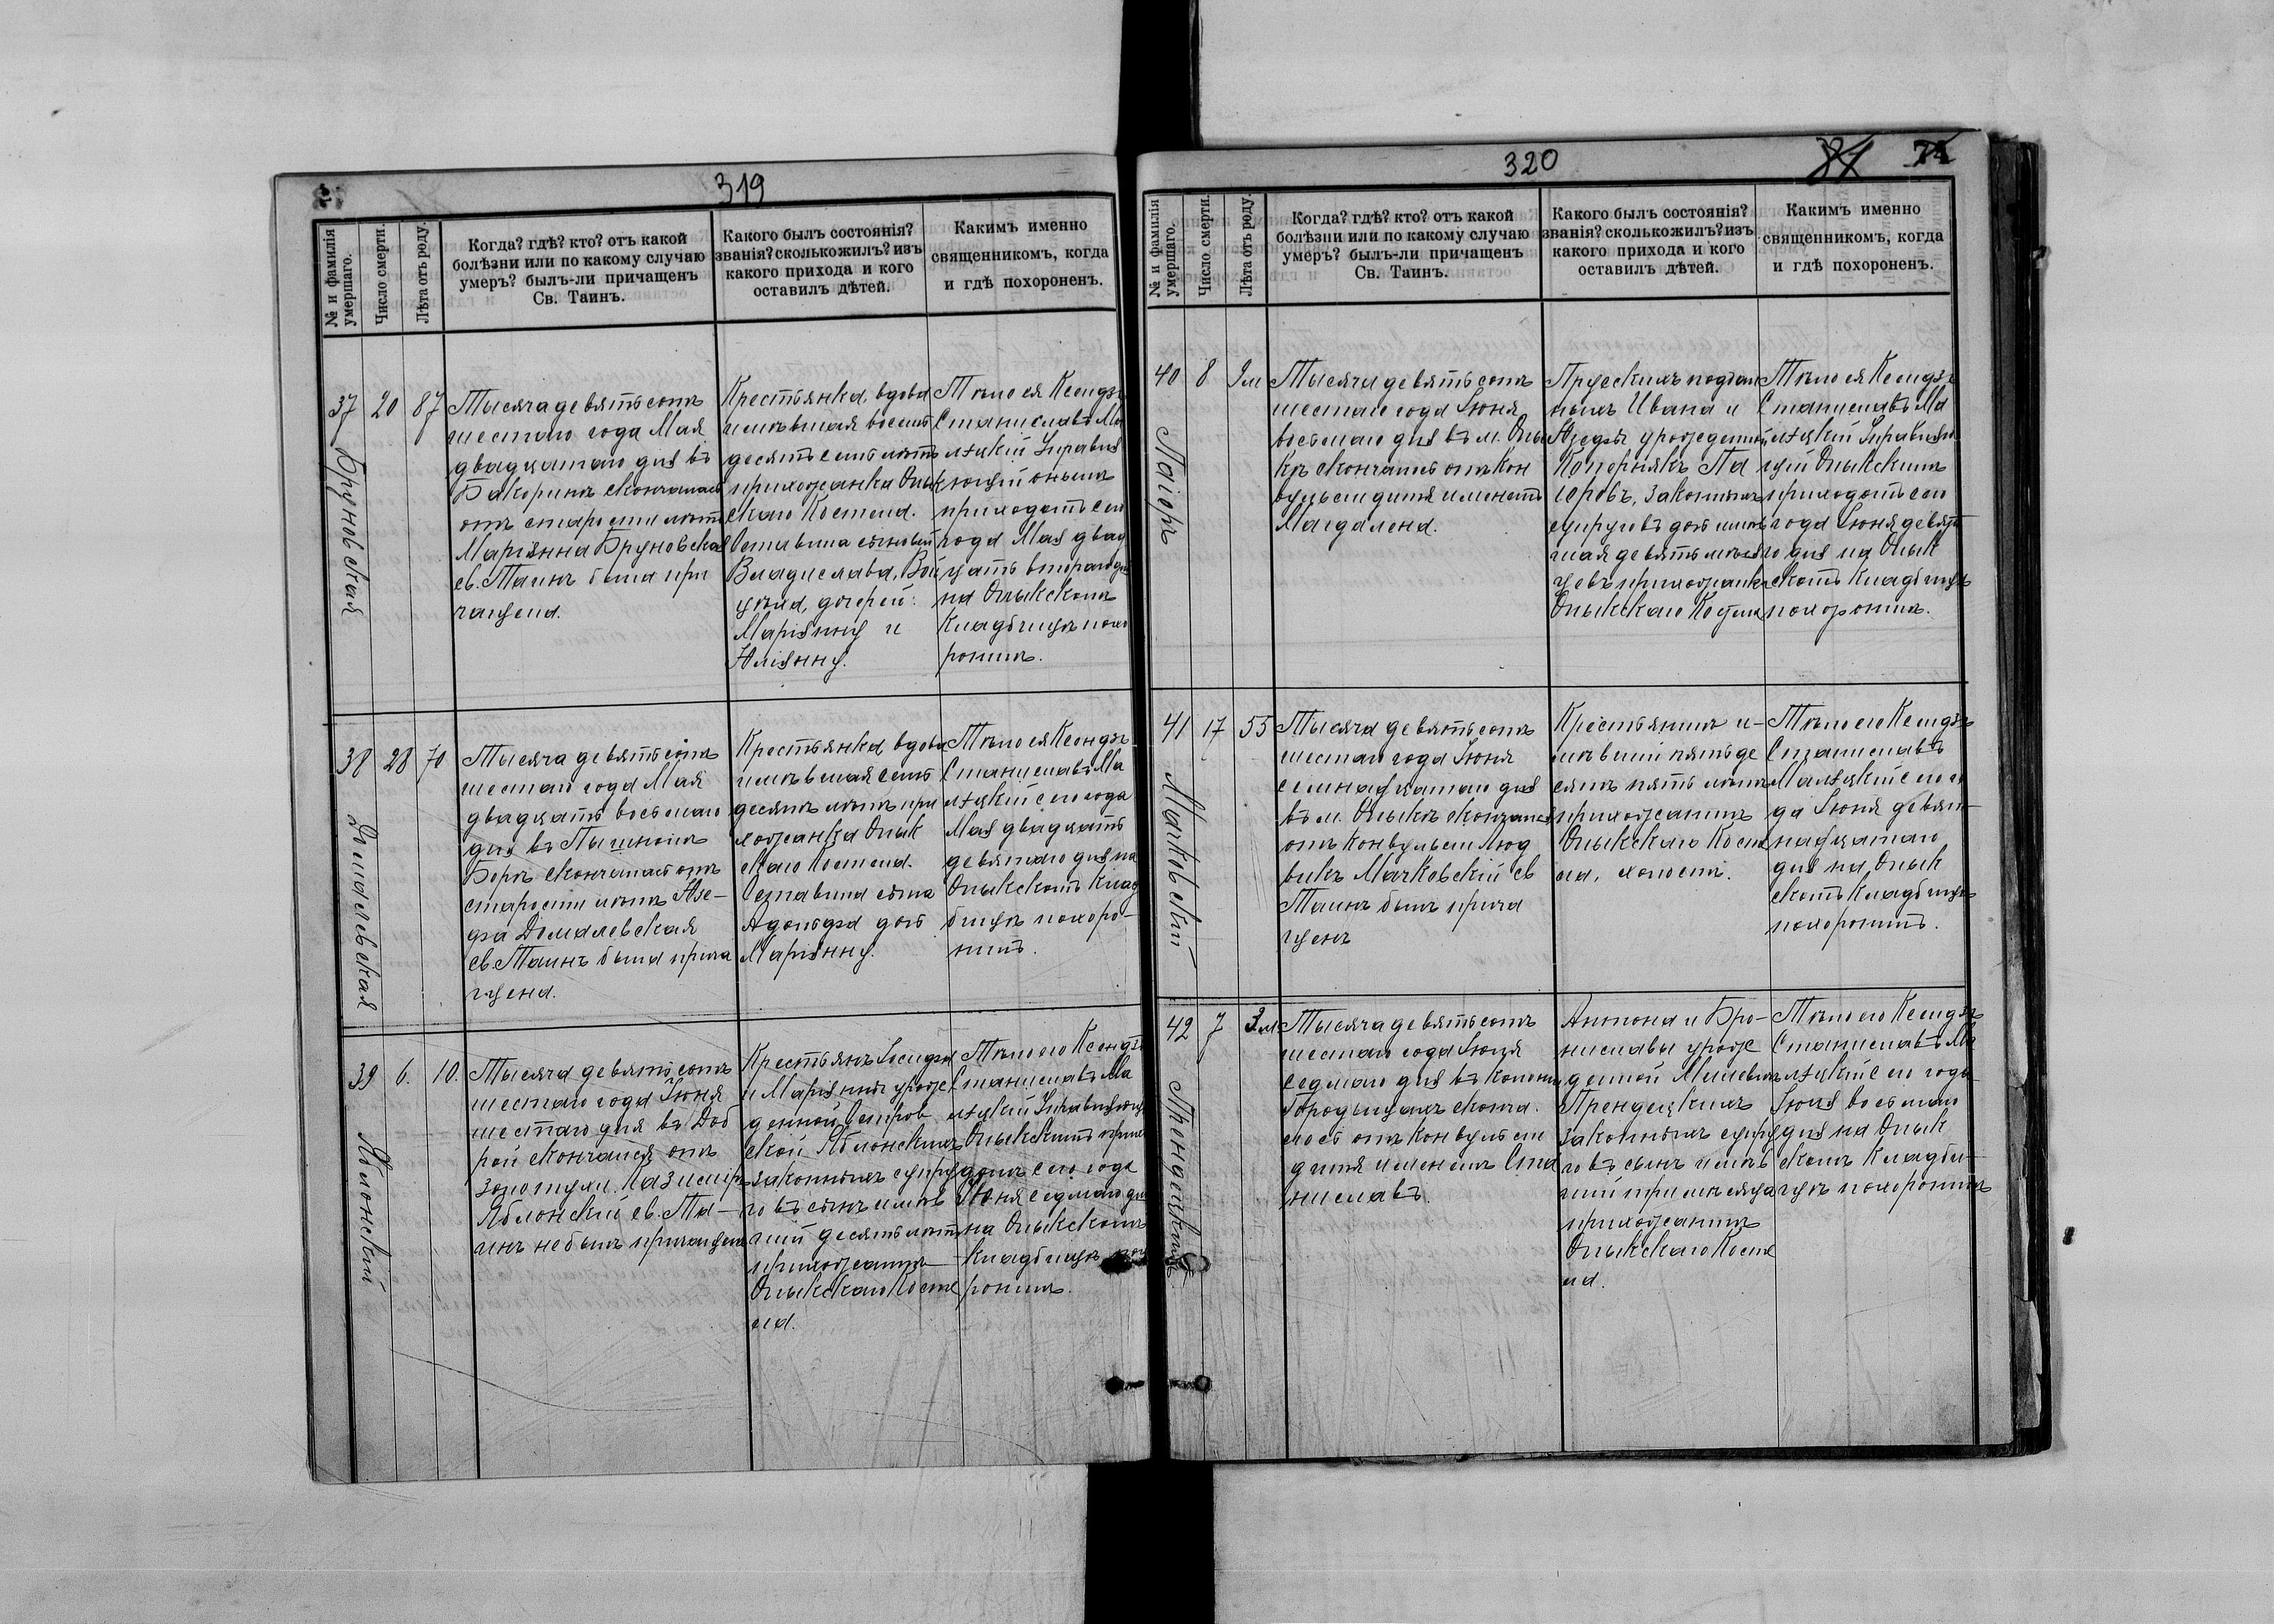 319
№ и фамилія
умершаго.
Число смерти.
Лѣта отъ роду.
Когда? гдѣ? кто? отъ какой
болѣзни или по какому случаю
умеръ? былъ-ли причащенъ
Св. Таинъ.
Какого былъ состоянія?
званія? сколько жилъ? изъ
какого прихода и кого
оставилъ дѣтей.
Какимъ именно
священникомъ, когда
и гдѣ похороненъ.
37
Бруновская
20
87
Тысяча девятьсотъ
шестаго года Мая
двадцатаго дня въ
Бакоринѣ скончалась
отъ старости лѣтъ
Маріянна Бруновская
св. Таинъ была при
чащена.
Крестьянка, вдова
имѣвшая восемь
десятъ семь лѣтъ
прихожанка Олык
скаго Костела.
Оставила сыновей
Владислава, Вой
цѣха, дочерей:
Маріянну и
Юліянну.
Тѣло ея Ксендзъ
Станиславъ Ма
лѣцкій Управля
ющій онымъ
приходомъ сего
года Мая двад
цать втораго дня
на Олыкскомъ
Кладбищѣ похо
ронилъ.
38
Домалевская
28
70
Тысяча девятьсотъ
шестаго года Мая
двадцать восьмаго
дня въ Пышномъ
Борѣ скончалась отъ
старости лѣтъ Юзе-
фа Домалевская
св. Таинъ была прича
щена.
Крестьянка, вдова
имѣвшая семь
десятъ лѣтъ при
хожанка Олык
скаго Костела.
Оставила сына
Адольфа дочь
Маріянну.
Тѣло ея Ксендзъ
Станиславъ Ма
лѣцкій сего года
Мая двадцать
девятаго дня на
Олыкскомъ Клад
бищѣ похоро-
нилъ.
39
Яблонскій
6.
10.
Тысяча девятьсотъ
шестаго года Іюня
шестаго дня въ Доб
рой скончался отъ
золотухи. Казимиръ
Яблонскій св. Та-
инъ не былъ причащенъ
Крестьянъ Іосифа
и Маріянны урож
денной Остров
ской Яблонскихъ
законныхъ супру
говъ сынъ имѣв
шій десять лѣтъ
прихожанинъ
Олыкскаго Косте
ла.
Тѣло его Ксендзъ
Станиславъ Ма
лѣцкій Управляющій
Олыкскимъ прихо
домъ сего года
Іюня седмаго дня
на Олыкскомъ
Кладбищѣ похо
ронилъ.
320
№ и фамилія
умершаго.
Число смерти.
Лѣта отъ роду.
Когда? гдѣ? кто? отъ какой
болѣзни или по какому случаю
умеръ? былъ-ли причащенъ
Св. Таинъ.
Какого былъ состоянія?
званія? сколько жилъ? изъ
какого прихода и кого
оставилъ дѣтей.
Какимъ именно
священникомъ, когда
и гдѣ похороненъ.
40
Паіеръ
8
9м
Тысяча девятьсотъ
шестаго года Іюня
восьмаго дня въ м. Олы
кѣ скончалось отъ кон
вульсіи дитя именемъ
Магдалена.
Прусскихъ поддан
ныхъ Ивана и
Юзефы урожденной
Коперникъ Па
іеровъ, законныхъ
супруговъ дочь имѣв
шая девять мѣся
цевъ прихожанка
Олыкскаго Костела
Тѣло ея Ксендзъ
Станиславъ Ма
лѣцкій Управляю
щій Олыкскимъ
приходомъ сего
года Іюня девята
го дня на Олык
скомъ Кладбищѣ
похоронилъ.
41
Мачковскій
17
55
Тысяча девятьсотъ
шестаго года Іюня
семнадцатаго дня
въ м. Олыкѣ скончался
отъ конвульсіи Люд
викъ Мачковскій св
Таинъ былъ прича
щенъ
Крестьянинъ и-
мѣвшій пятьде
сятъ пять лѣтъ
прихожанинъ
Олыкскаго Косте
ла, холостъ.
Тѣло его Ксендзъ
Станиславъ
Малѣцкій сего го
да Іюня девят-
надцатаго
дня на Олык
скомъ Кладбищѣ
похоронилъ.
42
Прендецкій
7
3м.
Тысяча девятьсотъ
шестаго года Іюля
седмаго дня въ колоніи
Городищахъ сконча-
лось отъ конвульсіи
дитя именемъ Ста
ниславъ.
Антона и Бро-
ниславы урож
денной
Прендецкихъ
законныхъ супру
говъ сынъ имѣв
шій три мѣсяца
прихожанинъ
Олыкскаго Косте
ла.
Тѣло его Ксендзъ
Станиславъ Ма
лѣцкій сего года
Іюля восьмаго
дня на Олык
скомъ Кладби-
щѣ похоронилъ